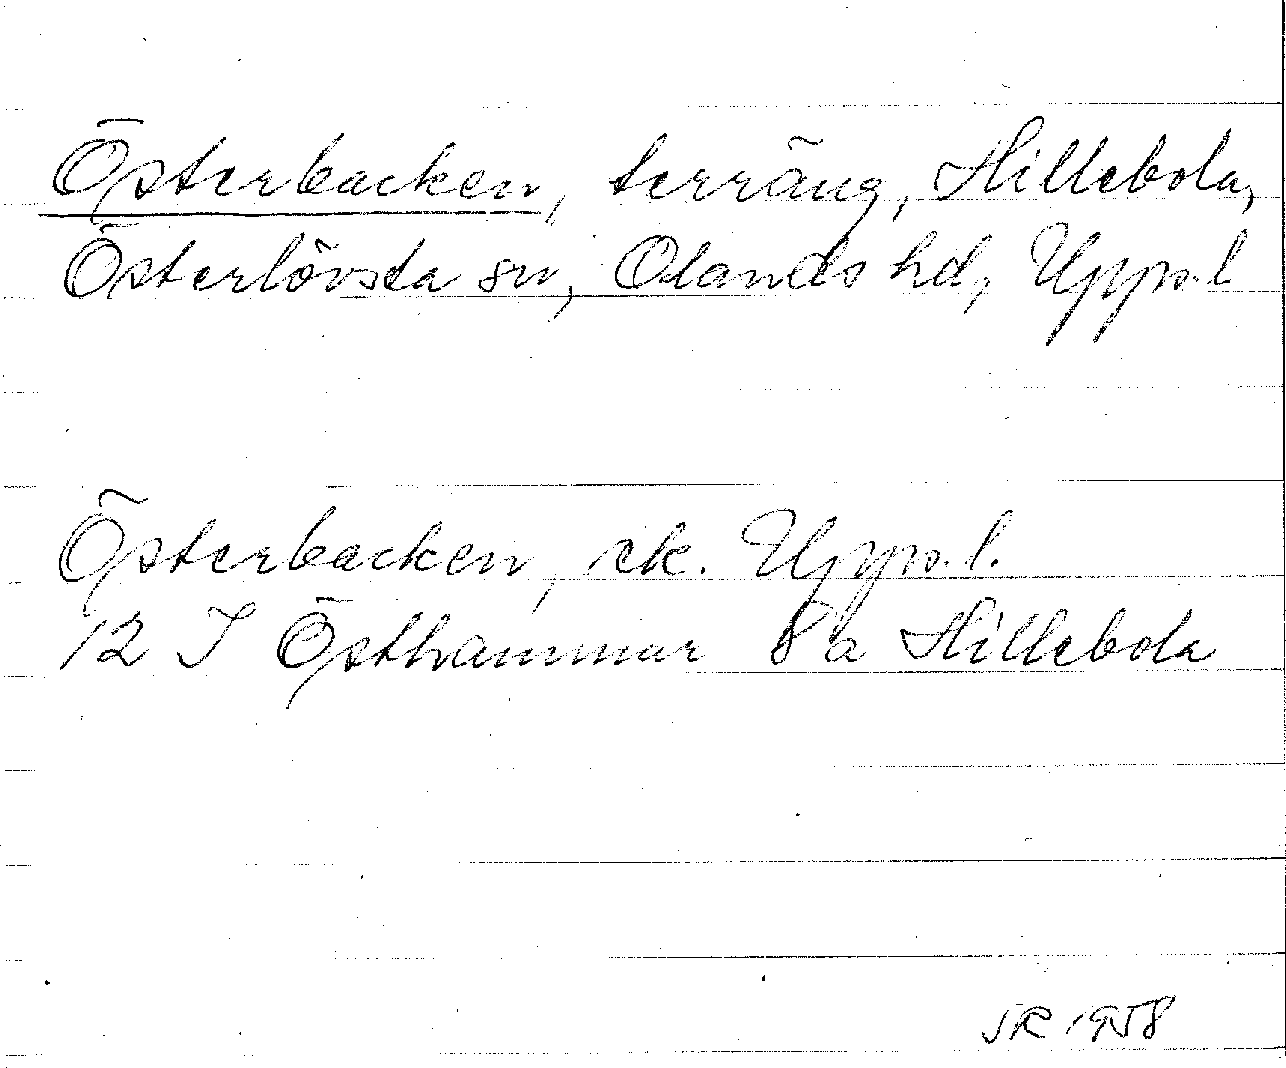 Österbacken, terräng, Hillebola,
Österlövsta sn, Olands hd, Upps. l
Österbacken, ek. Upps. l.
12 I Östhammar 8a Hillebola
JR 1958